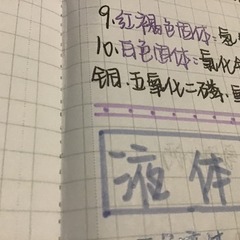 9.红褐色固体:氢
10.白色固体:氧化
铜.五氧化二磷.
液体